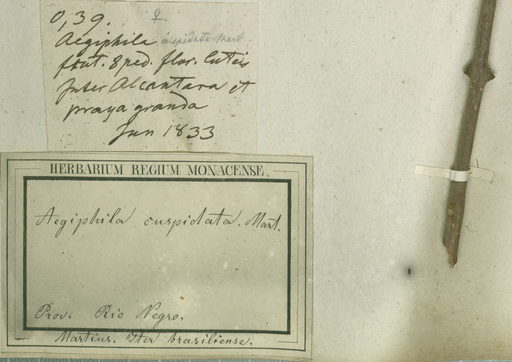 0,39. ♀
Aegiphila cuspidata Mart.
frut. 8 ped. flor. luteis
Inter Alcantara et
praya granda
Jun 1833
HERBARIUM REGIUM MONACENSE.
Aegiphila cuspidata. Mart.
Prov. Rio Negro.
Martius. Iter brasiliense.